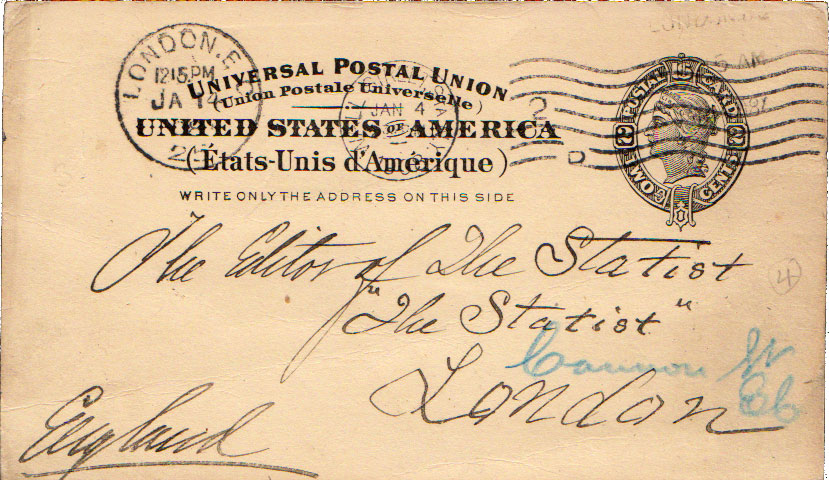 LONDON. E.
12 15.PM
JA 14
UNIVERSAL POSTAL UNION
(Union Postale Universelle)
JAN 4
UNITED STATES OF AMERICA
(États-Unis d'Amérique)
WRITE ONLY THE ADDRESS ON THIS SIDE
POSTAL CARD
2 2
TWO CENTS
5 AM
The Editor of The Statist
"The Statist"
4
Cannon St
EC
London
England